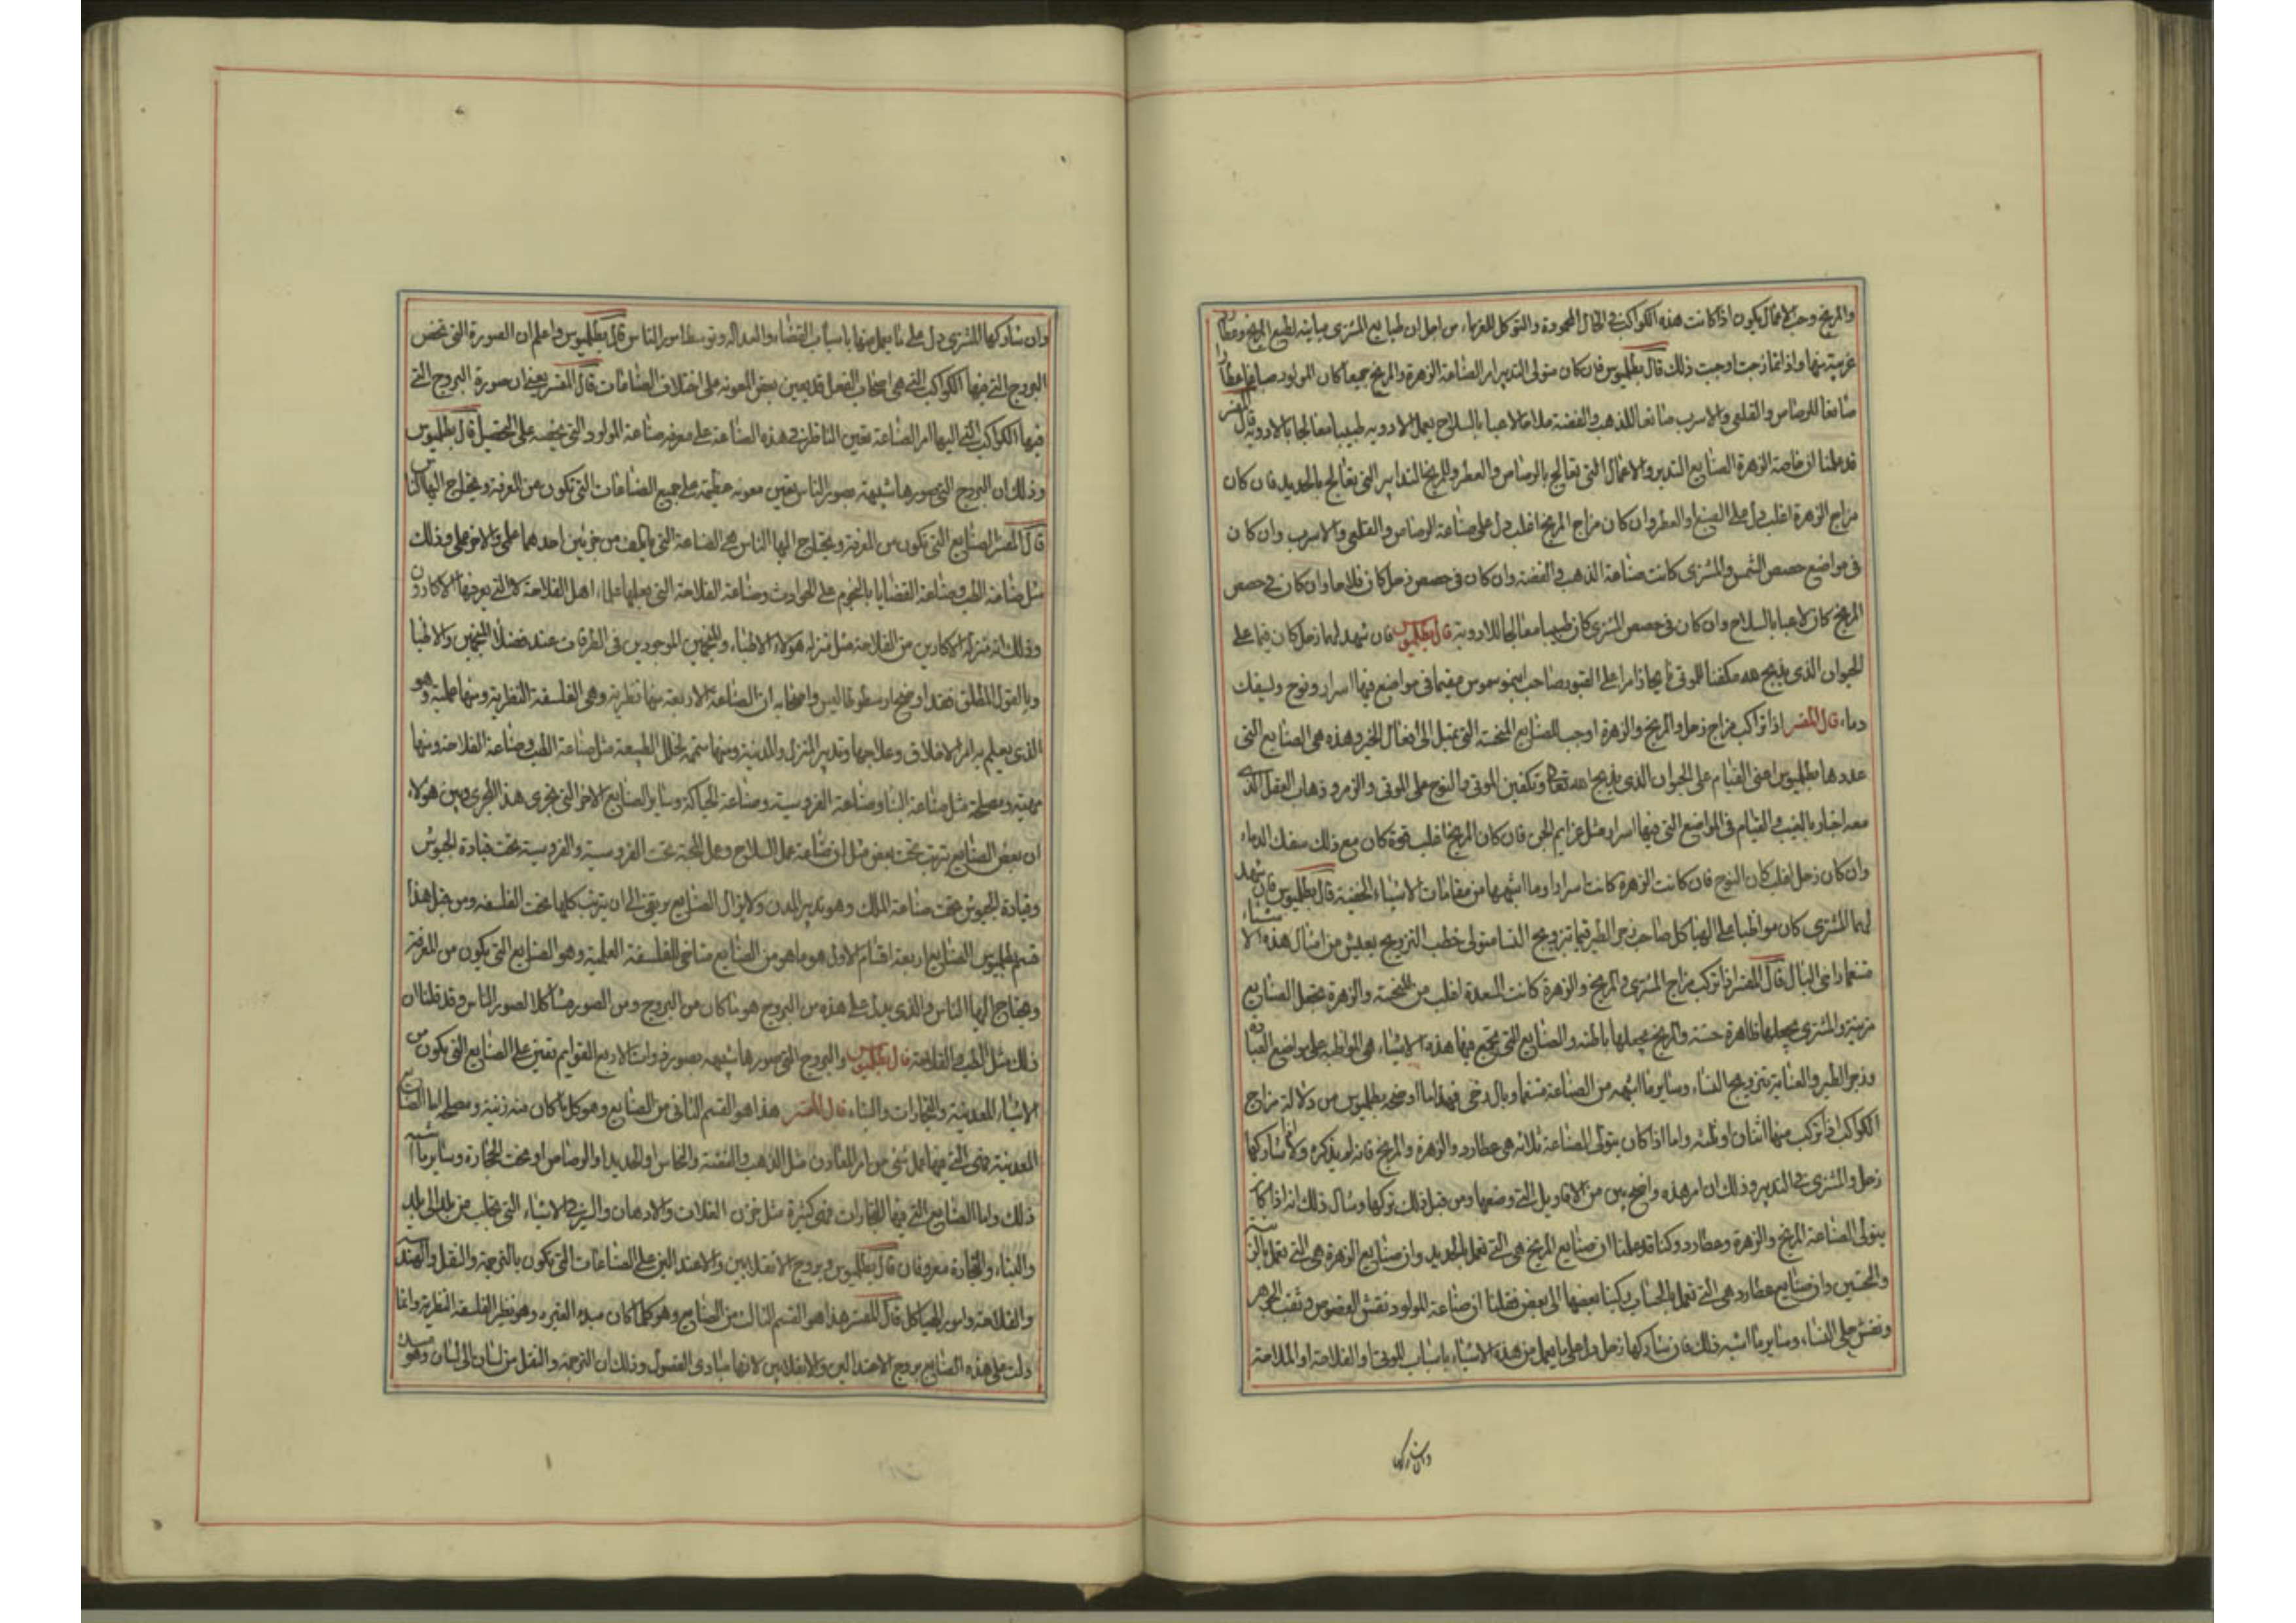 والمريخ وحب الاعمال يكون اذا كانت هذه الكواكب في الحال المحمودة والتوكل للغرباء من اجل ان طبايع المشترى مباينه لطبع المريخ وعطارد
غريبة منها واذا تمازجت اوجبت ذلك قال بطلميوس فان كان متولى التدبير امر الصناعة الزهرة والمريخ جميعا كان المولود صباغا عطارا
صانعا للرصاص والقلعى والاسرب صانعا للذهب والفضة فلاحا لاعبا بالسلاح يعمل الادويه طبيبا معالجا بالادوية قال المفسر
قد علمنا ان خاصة الزهرة الصنايع التدبير والاعمال التى تعالج بالرصاص والعطر وللمريخ التدابير التى تعالج بالحديد فان كان
مزاج الزهرة اغلب دل على الصبغ او العطر وان كان مزاج المريخ اغلب دل على صناعة الرصاص والقلعى والاسرب وان كان
فى مواضع حصص الشمس والمشترى كانت صناعة الذهب والفضة وان كان فى حصص زحل كان فلاحا وان كان في حصص
المريخ كان لاعبا بالسلاح وان كان فى حصص المشترى كان طبيبا معالجا للادوية قال بطلميوس فان شهد لهما زحل كان قيما على
الحيوان الذى يذبح لله مكفنا للموتى نايحا زامرا على القبور صاحب مقيما فى مواضع فيها اسرار ونوح وليسفك
دماء قال المفسر اذا تراكب مزاج زحل والمريخ والزهرة اوجب الصنايع المنحسة التى تميل الى افعال الخير وهذه هى الصنايع التى
عددها بطلميوس اعنى القيام على الحيوان الذى يذبح لله تعالى وتكفين الموتى والنوح على الموتى والزمر وذهاب العقل الذى
معه اخبار بالغيب والقيام فى المواضع التى فيها اسرار مثل عزايم الجن فان كان المريخ اغلب قوة كان مع ذلك سفك الدماء
وان كان زحل اغلب كان النوح فان كانت الزهرة كانت اسرارا وما اشبهها من مقامات الاشياء الخفية قال بطلميوس فان شهد
لهما المشترى كان مواظبا على الهياكل صاحب زجر الطير قيما بتزويج النسا متولى خطب التزويج يعيش من امثال هذه الاشياء
متنعما راخى البال قال المفسر اذا تركب مزاج المشترى والمريخ والزهرة كانت المسعدة اغلب من المنحسة والزهرة تجعل الصنايع
مزينة والمشترى يجعلها ظاهرة حسنة والمريخ يجعلها باطنه والصنايع التى يجتمع فيها هذه الاشياء هى المواظبة على مواضع العبادة
وزجر الطير والعناية بتزويج النساء وساير ما اشبهه من الصناعة متنعما وبال رخى فهذا ما اوضحه بطلميوس من دلالة مزاج
الكواكب اذا تركب منها اثنان او ثلثه واما اذا كان يتولى الصناعة ثلاثه هى عطارد والزهرة والمريخ فانه لم يذكره ولا اذا شاركها
زحل والمشترى في التدبير وذلك ان امر هذه واضح بين من الاقاويل التى وضعها ومن قبل ذلك تركها ومثال ذلك انه اذا كان
يتولى الصناعة المريخ والزهرة وعطارد وكنا قد علمنا ان صنايع المريخ هى التى تعمل بالحديد وان صنايع الزهرة هى التى تعمل بالزينة
والتحسين وان صنايع عطارد هى التى تعمل بالحساب ركبنا بعضها الى بعض فقلنا ان صناعة المولود نقش الفصوص وثقب الجوهر
ونقش حلى النساء وساير ما اشبه ذلك فان شاركها زحل دل على ما يعمل من هذه الاشياء باسباب الموتى او الفلاحة او الملاحة
وان شاركها
وان شاركها المشترى دل على ما يعمل منها باسباب القضاء والعدالة وتوسط امور الناس قال بطلميوس واعلم ان الصورة التى تخص
البروج التى فيها الكواكب التى هى اصحاب الفعل قد يعين بعض المعونه على اختلاف الصناعات قال المفسر يعنى ان صورة البروج التى
فيها الكواكب التى اليها امر الصناعة تعين الناظر في هذه الصناعة على معرفه صناعة المولود التى تخصه على التحصيل قال بطلميوس
وذلك ان البروج التى صورها شبيهة بصور الناس تعين معونه عظيمة على جميع الصناعات التى تكون من المعرفة ويحتاج اليها الناس
قال المفسر الصنايع التى تكون من المعرفة ويحتاج اليها الناس هى الصناعة التى يتالف من جزئين احدهما علمى والاخر عملى وذلك
مثل صناعة الطب وصناعة القضايا بالنجوم على الحوادث وصناعة الفلاحة التى يعلمها علماء اهل الفلاحة لا التى يعرفها الاكارون
وذلك انه منزلة الاكارين من الفلاحة مثل منزله هولاء الاطباء والمنجمين الموجودين فى الطرقات عند فضلاء المنجمين والاطبا
وبالقول المطلق فقد اوضح ارسطوطاليس واصحابه ان الصناعة الاربعة منها نظرية وهى الفلسفة النظرية ومنها عملية وهو
الذى يعلم به امر الاخلاق وعلاجها وتدبير المنزل والمدينة ومنها متممة لخلل الطبيعة مثل صناعة الطب وصناعة الفلاحة ومنها
مهنية ومصلحة مثل صناعة البنا وصناعة الفروسية وصناعة الحياكة وساير الصنايع الاخر التى تجرى هذا المجرى وبين هولاء
ان بعض الصنايع يترتب تحت بعض مثل ان صناعة عمل السلاح وعمل اللجمة تحت الفروسية والفروسية تحت قيادة الجيوش
وقيادة الجيوش تحت صناعة الملك وهو تدبير المدن ولا يزال الصنايع يرتقى الى ان يترتب كلها تحت الفلسفه ومن قبل هذا
قسم بطلميوس الصنايع اربعة اقسام الاول هو ما هو من الصنايع متاخى للفلسفة العلمية وهو الصنايع التى يكون من المعرفة
ويحتاج اليها الناس والذى يدل على هذه من البروج هو ما كان من البروج ومن الصور مشاكلا لصور الناس وقد قلنا ان
ذلك مثل الطب والفلاحة قال بطلميوس والبروج التى صورها شبيهه بصور ذوات الاربع القوايم تعين على الصنايع التى يكون من
الاشياء المعدنية والتجارات والبناء قال المفسر هذا هو القسم الثانى من الصنايع وهو كل ما كان منه زينة ومصلحه اما الصنايع
المعدنية فهى التى فيها عمل شى من امر المعادن مثل الذهب والفضة والنحاس او الحديد او الرصاص او نحت الحجارة وساير ما اشبه
ذلك واما الصنايع التى فيها التجارات فهى كثيرة مثل خزن الغلات والادهان والبز في الاشياء التى تجلب من بلد الى بلد
والبناء والنجارة معروفان قال بطلميوس وبروج الانقلابين والاعتدالين على الصناعات التى تكون بالترجمة والنقل والهندسة
والفلاحة وامور الهياكل قال المفسر هذا هو القسم الثالث من الصنايع وهو كلما كان مبدء لغيره وهو نظير الفلسفة النظرية وانما
دلت على هذه الصنايع بروج الاعتدالين والانقلابين لانها مبادى الفصول وذلك ان الترجمة والنقل من لسان الى لسان وهو مبدء